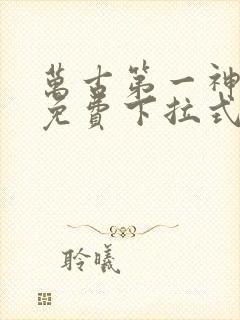 萬古第一神
免費下拉式
聆曦